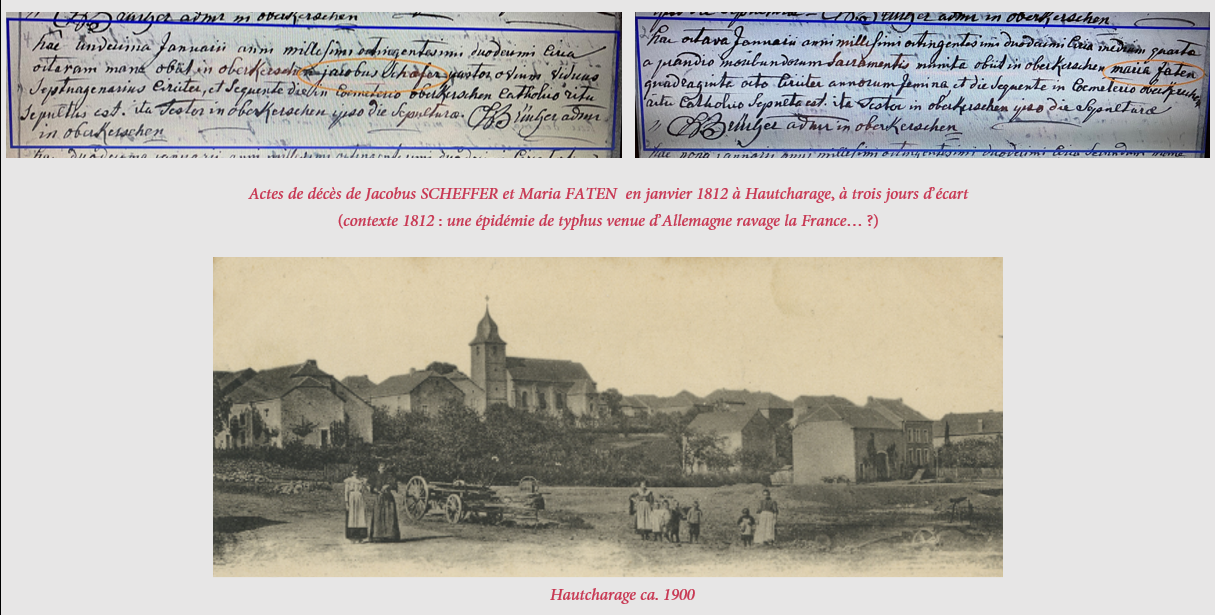 admr in oberkerschen
hac undecima Januarii anni millesimi octingentesimi duodecimi circa
octavam mane obiit in oberkerschen jacobus schäfer pastor ovium viduus
Septuagenarius Circiter, et Sequente die in Coemeterio oberkerschen Catholico ritu
Sepultus est. ita Testor in oberkerschen ipso die Sepulturæ.
admr
in oberkerschen
hac duodecima januarii anni millesimi octingentesimi duodecimi
admr in oberkerschen
hac octava Januarii anni millesimi octingentesimi duodecimi Circa mediam quarta
a prandio moribundorum Sacramentis munita obiit in oberkerschen maria faten
quadraginta octo Circiter annorum femina et die sequente in Coemeterio oberkerschen
ritu Catholico Sepulta est. ita Testor in oberkerschen ipso die Sepulturæ
admr in oberkerschen
hac nona januarii anni millesimi octingentesimi duodecimi Circa
Actes de décès de Jacobus SCHEFFER et Maria FATEN en janvier 1812 à Hautcharage, à trois jours d'écart
(contexte 1812 : une épidémie de typhus venue d'Allemagne ravage la France… ?)
Hautcharage ca. 1900